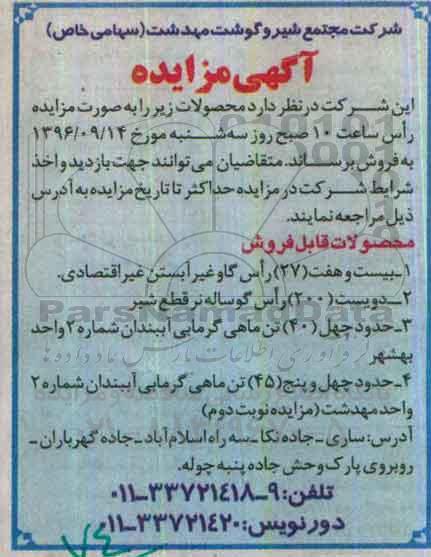 شرکت مجتمع شیر و گوشت مهدشت (سهامی خاص)
آگهی مزایده
این شرکت در نظر دارد محصولات زیر را به صورت مزایده
رأس ساعت ۱۰ صبح روز سه‌شنبه مورخ ۱۳۹۶/۰۹/۱۴
به فروش برساند. متقاضیان می‌توانند جهت بازدید و اخذ
شرایط شرکت در مزایده حداکثر تا تاریخ مزایده به آدرس
ذیل مراجعه نمایند.
محصولات قابل فروش
۱_بیست و هفت (۲۷) رأس گاو غیر آبستن غیر اقتصادی.
۲_دویست (۲۰۰) رأس گوساله نر قطع شیر
۳_حدود چهل (۴۰) تن ماهی گرمابی آببندان شماره ۲ واحد
بهشهر
۴_حدود چهل و پنج (۴۵) تن ماهی گرمابی آببندان شماره ۲
واحد مهدشت (مزایده نوبت دوم)
آدرس: ساری _ جاده نکا _ سه راه اسلام‌آباد _ جاده گهرباران _
روبروی پارک وحش جاده پنبه چوله.
تلفن: ۹_۳۳۷۲۱۴۱۸_۰۱۱
دورنویس: ۳۳۷۲۱۴۲۰_۰۱۱
ParsNamadData